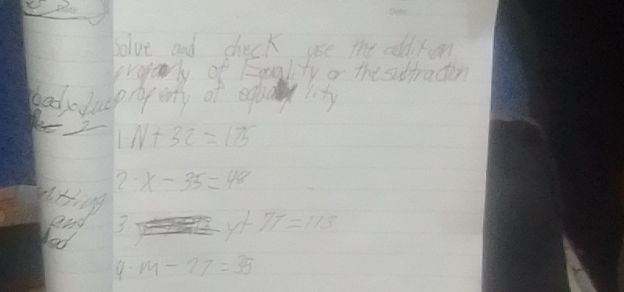 Solve and check use the addition
property of Equality or the subtraction
property of equality
1 N + 32 = 175
2. X - 35 = 48
and
3 y + 77 = 113
4. m - 27 = 35